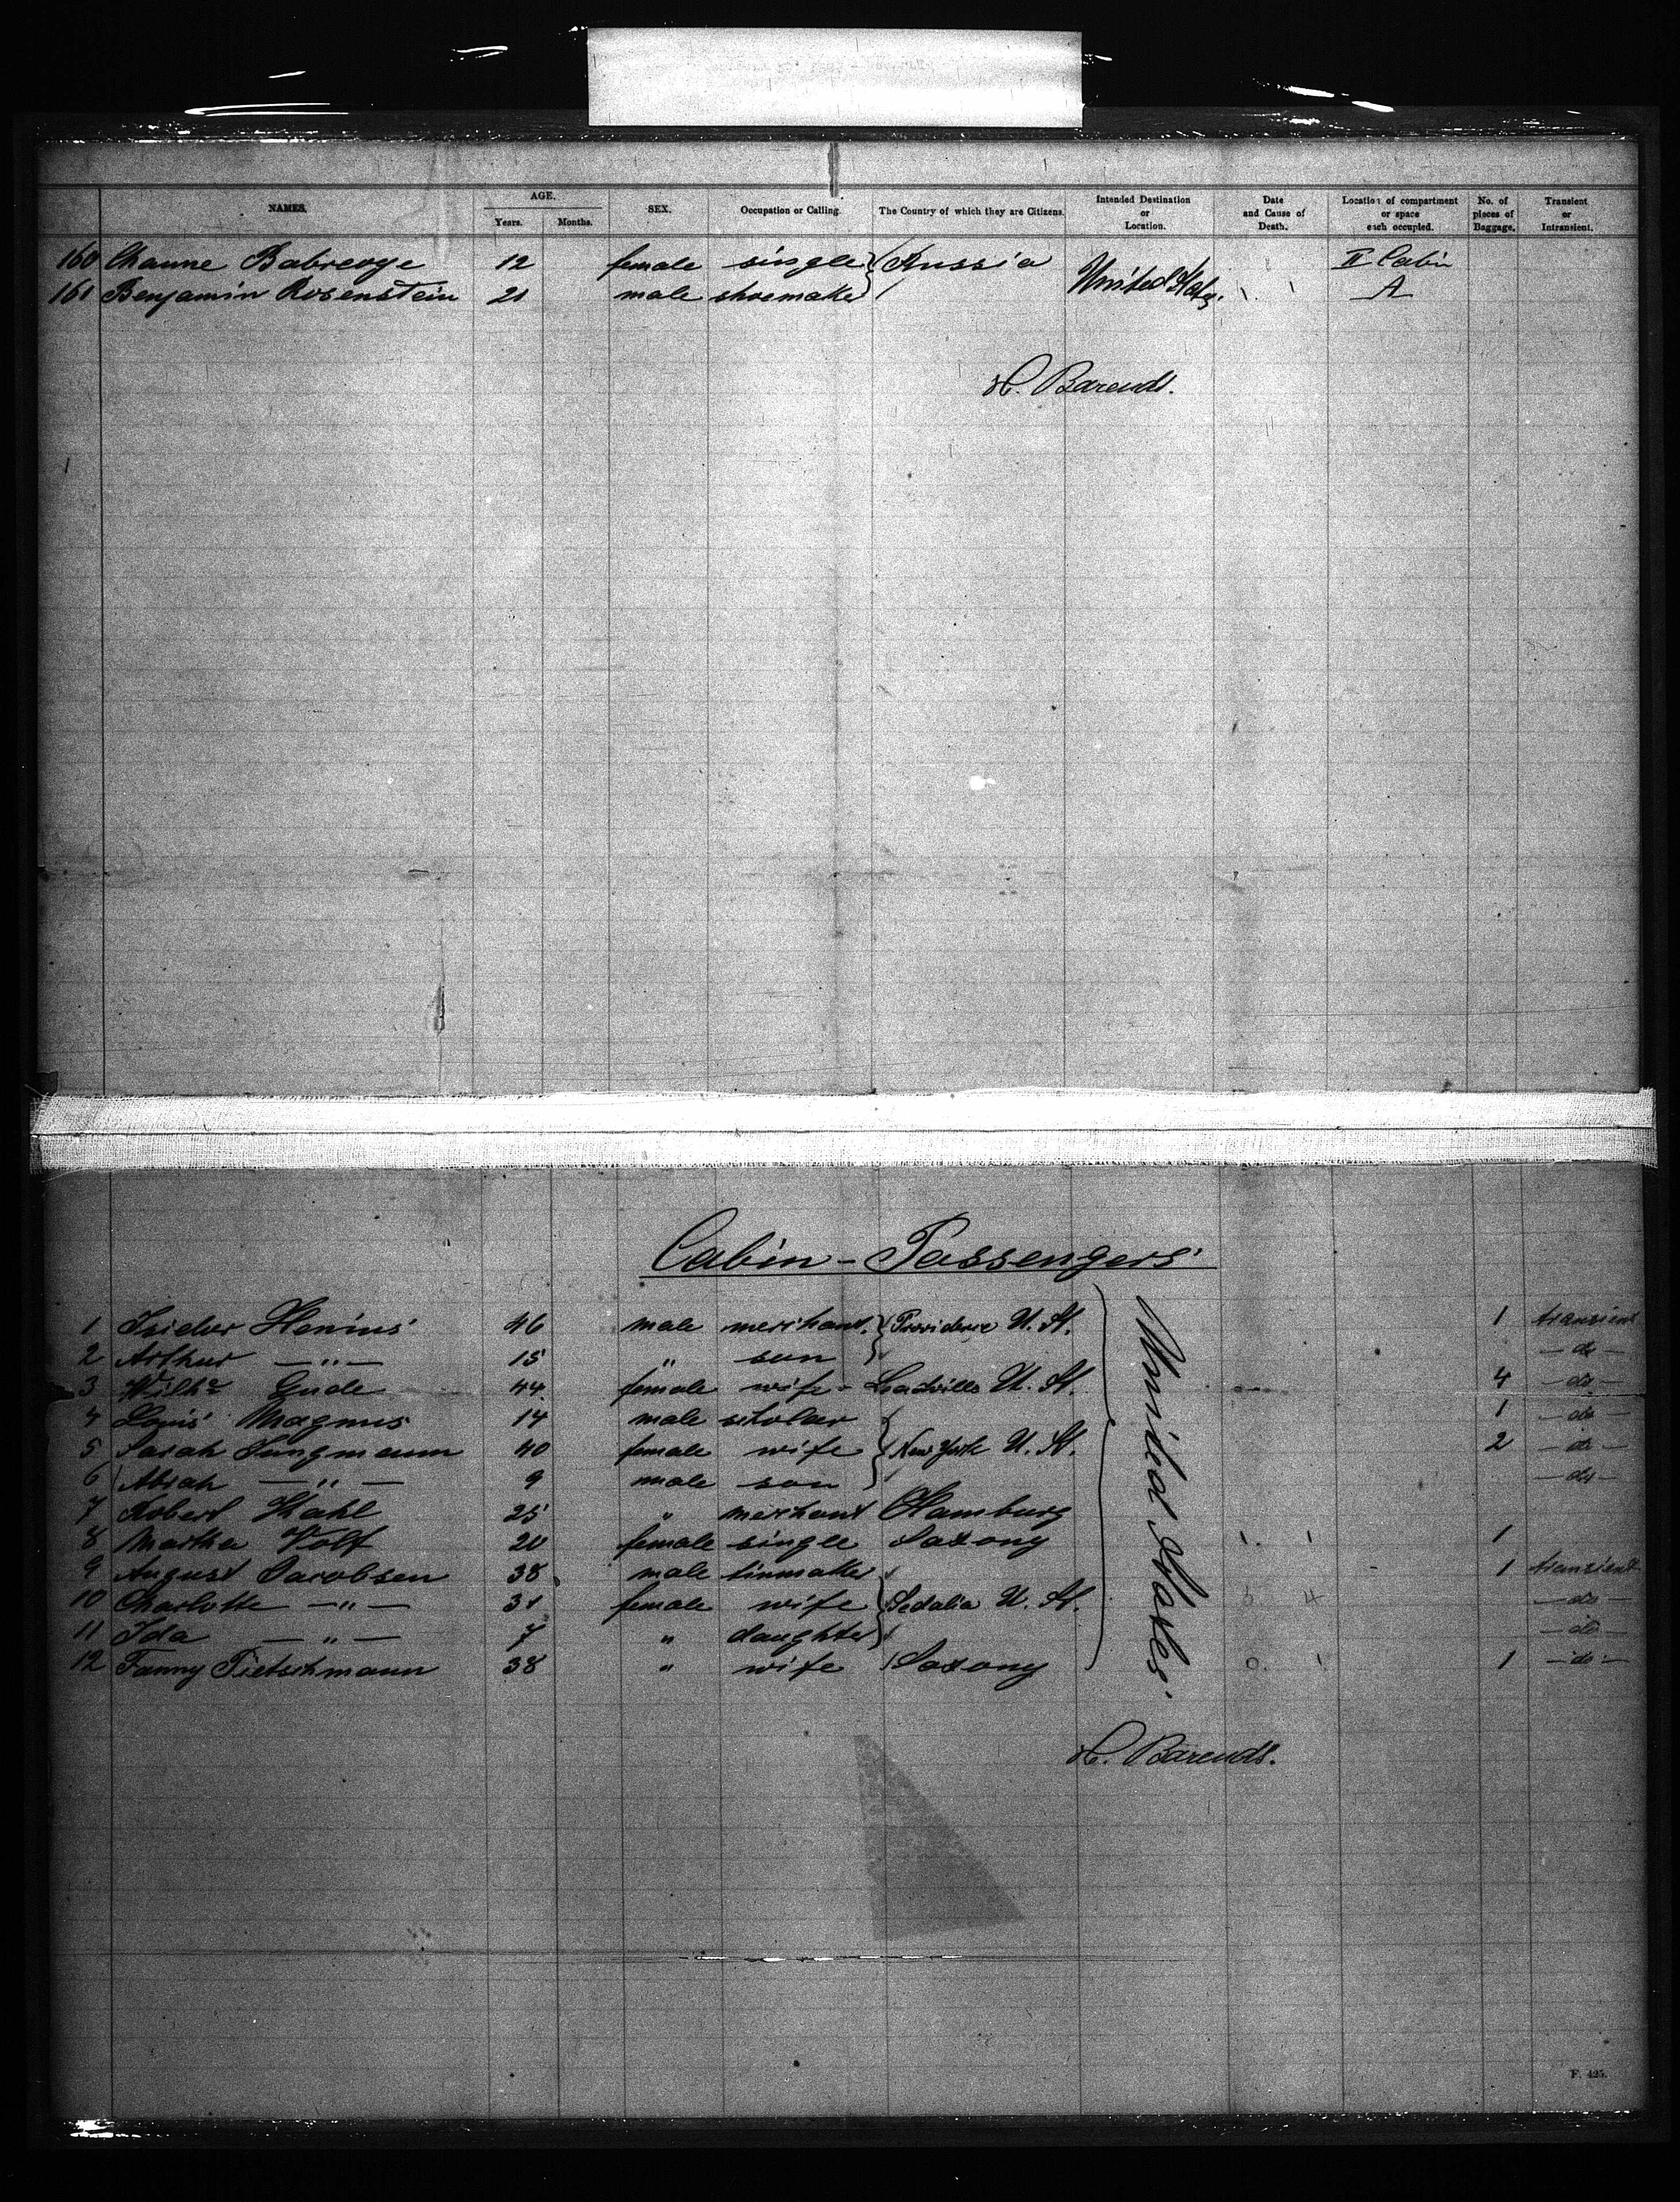 NAMES. AGE. Years. Months. SEX. Occupation or Calling. The Country of which they are Citizens. Intended Destination or Location. Date and Cause of Death. Location of compartment or space each occupied. No. of pieces of Baggage. Transient or Intransient.
160 Channe 12 female single Russia United States. II Cabin
161 Benjamin Rosenstein 21 male shoemaker A
H. Barends.
Cabin - Passengers
1 Isidor Henius 46 male merchant. Providence U. St. United States. 1 transient
2 Arthur — " — 15 " son — do —
3 Wilhe Gude 44 female wife - Leadville U. St. 4 — do —
4 Louis Magnus 14 male scholar 1 — do —
5 Sarah Jungmann 40 female wife New York U. St. 2 — do —
6 Abrah — " — 9 male son — do —
7 Robert Stahl 25 " merchant Hamburg
8 Martha Volf 20 female single Saxony 1
9 August Jacobsen 38 male tinmaker 1 transient
10 Charlotte — " — 31 female wife Sedalia U. St. — do —
11 Ida — " — 7 " daughter — do —
12 Fanny Pietschmann 38 " wife Saxony 1 — do —
H. Barends.
F. 425.